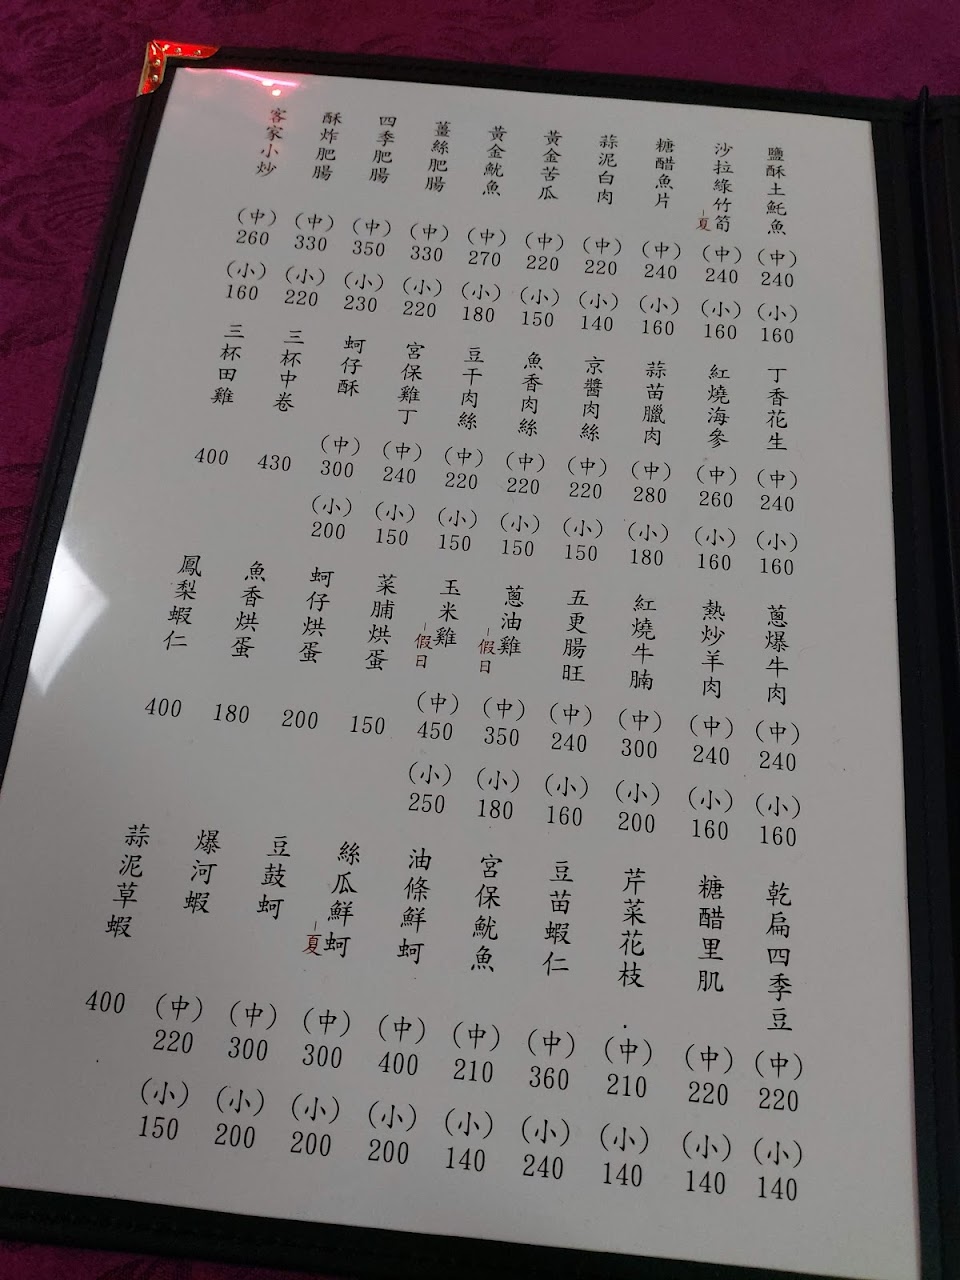 鹽酥土魠魚 (中) 240 (小) 160
沙拉綠竹筍-夏 (中) 240 (小) 160
糖醋魚片 (中) 240 (小) 160
蒜泥白肉 (中) 220 (小) 140
黃金苦瓜 (中) 220 (小) 150
黃金魷魚 (中) 270 (小) 180
薑絲肥腸 (中) 330 (小) 220
四季肥腸 (中) 350 (小) 230
酥炸肥腸 (中) 330 (小) 220
客家小炒 (中) 260 (小) 160
丁香花生 (中) 240 (小) 160
紅燒海參 (中) 260 (小) 160
蒜苗臘肉 (中) 280 (小) 180
京醬肉絲 (中) 220 (小) 150
魚香肉絲 (中) 220 (小) 150
豆干肉絲 (中) 220 (小) 150
宮保雞丁 (中) 240 (小) 150
蚵仔酥 (中) 300 (小) 200
三杯中卷 430
三杯田雞 400
蔥爆牛肉 (中) 240 (小) 160
熱炒羊肉 (中) 240 (小) 160
紅燒牛腩 (中) 300 (小) 200
五更腸旺 (中) 240 (小) 160
蔥油雞-假日 (中) 350 (小) 180
玉米雞-假日 (中) 450 (小) 250
菜脯烘蛋 150
蚵仔烘蛋 200
魚香烘蛋 180
鳳梨蝦仁 400
乾扁四季豆 (中) 220 (小) 140
糖醋里肌 (中) 220 (小) 140
芹菜花枝 (中) 210 (小) 140
豆苗蝦仁 (中) 360 (小) 240
宮保魷魚 (中) 210 (小) 140
油條鮮蚵 (中) 400 (小) 200
絲瓜鮮蚵-夏 (中) 300 (小) 200
豆鼓蚵 (中) 300 (小) 200
爆河蝦 (中) 220 (小) 150
蒜泥草蝦 400